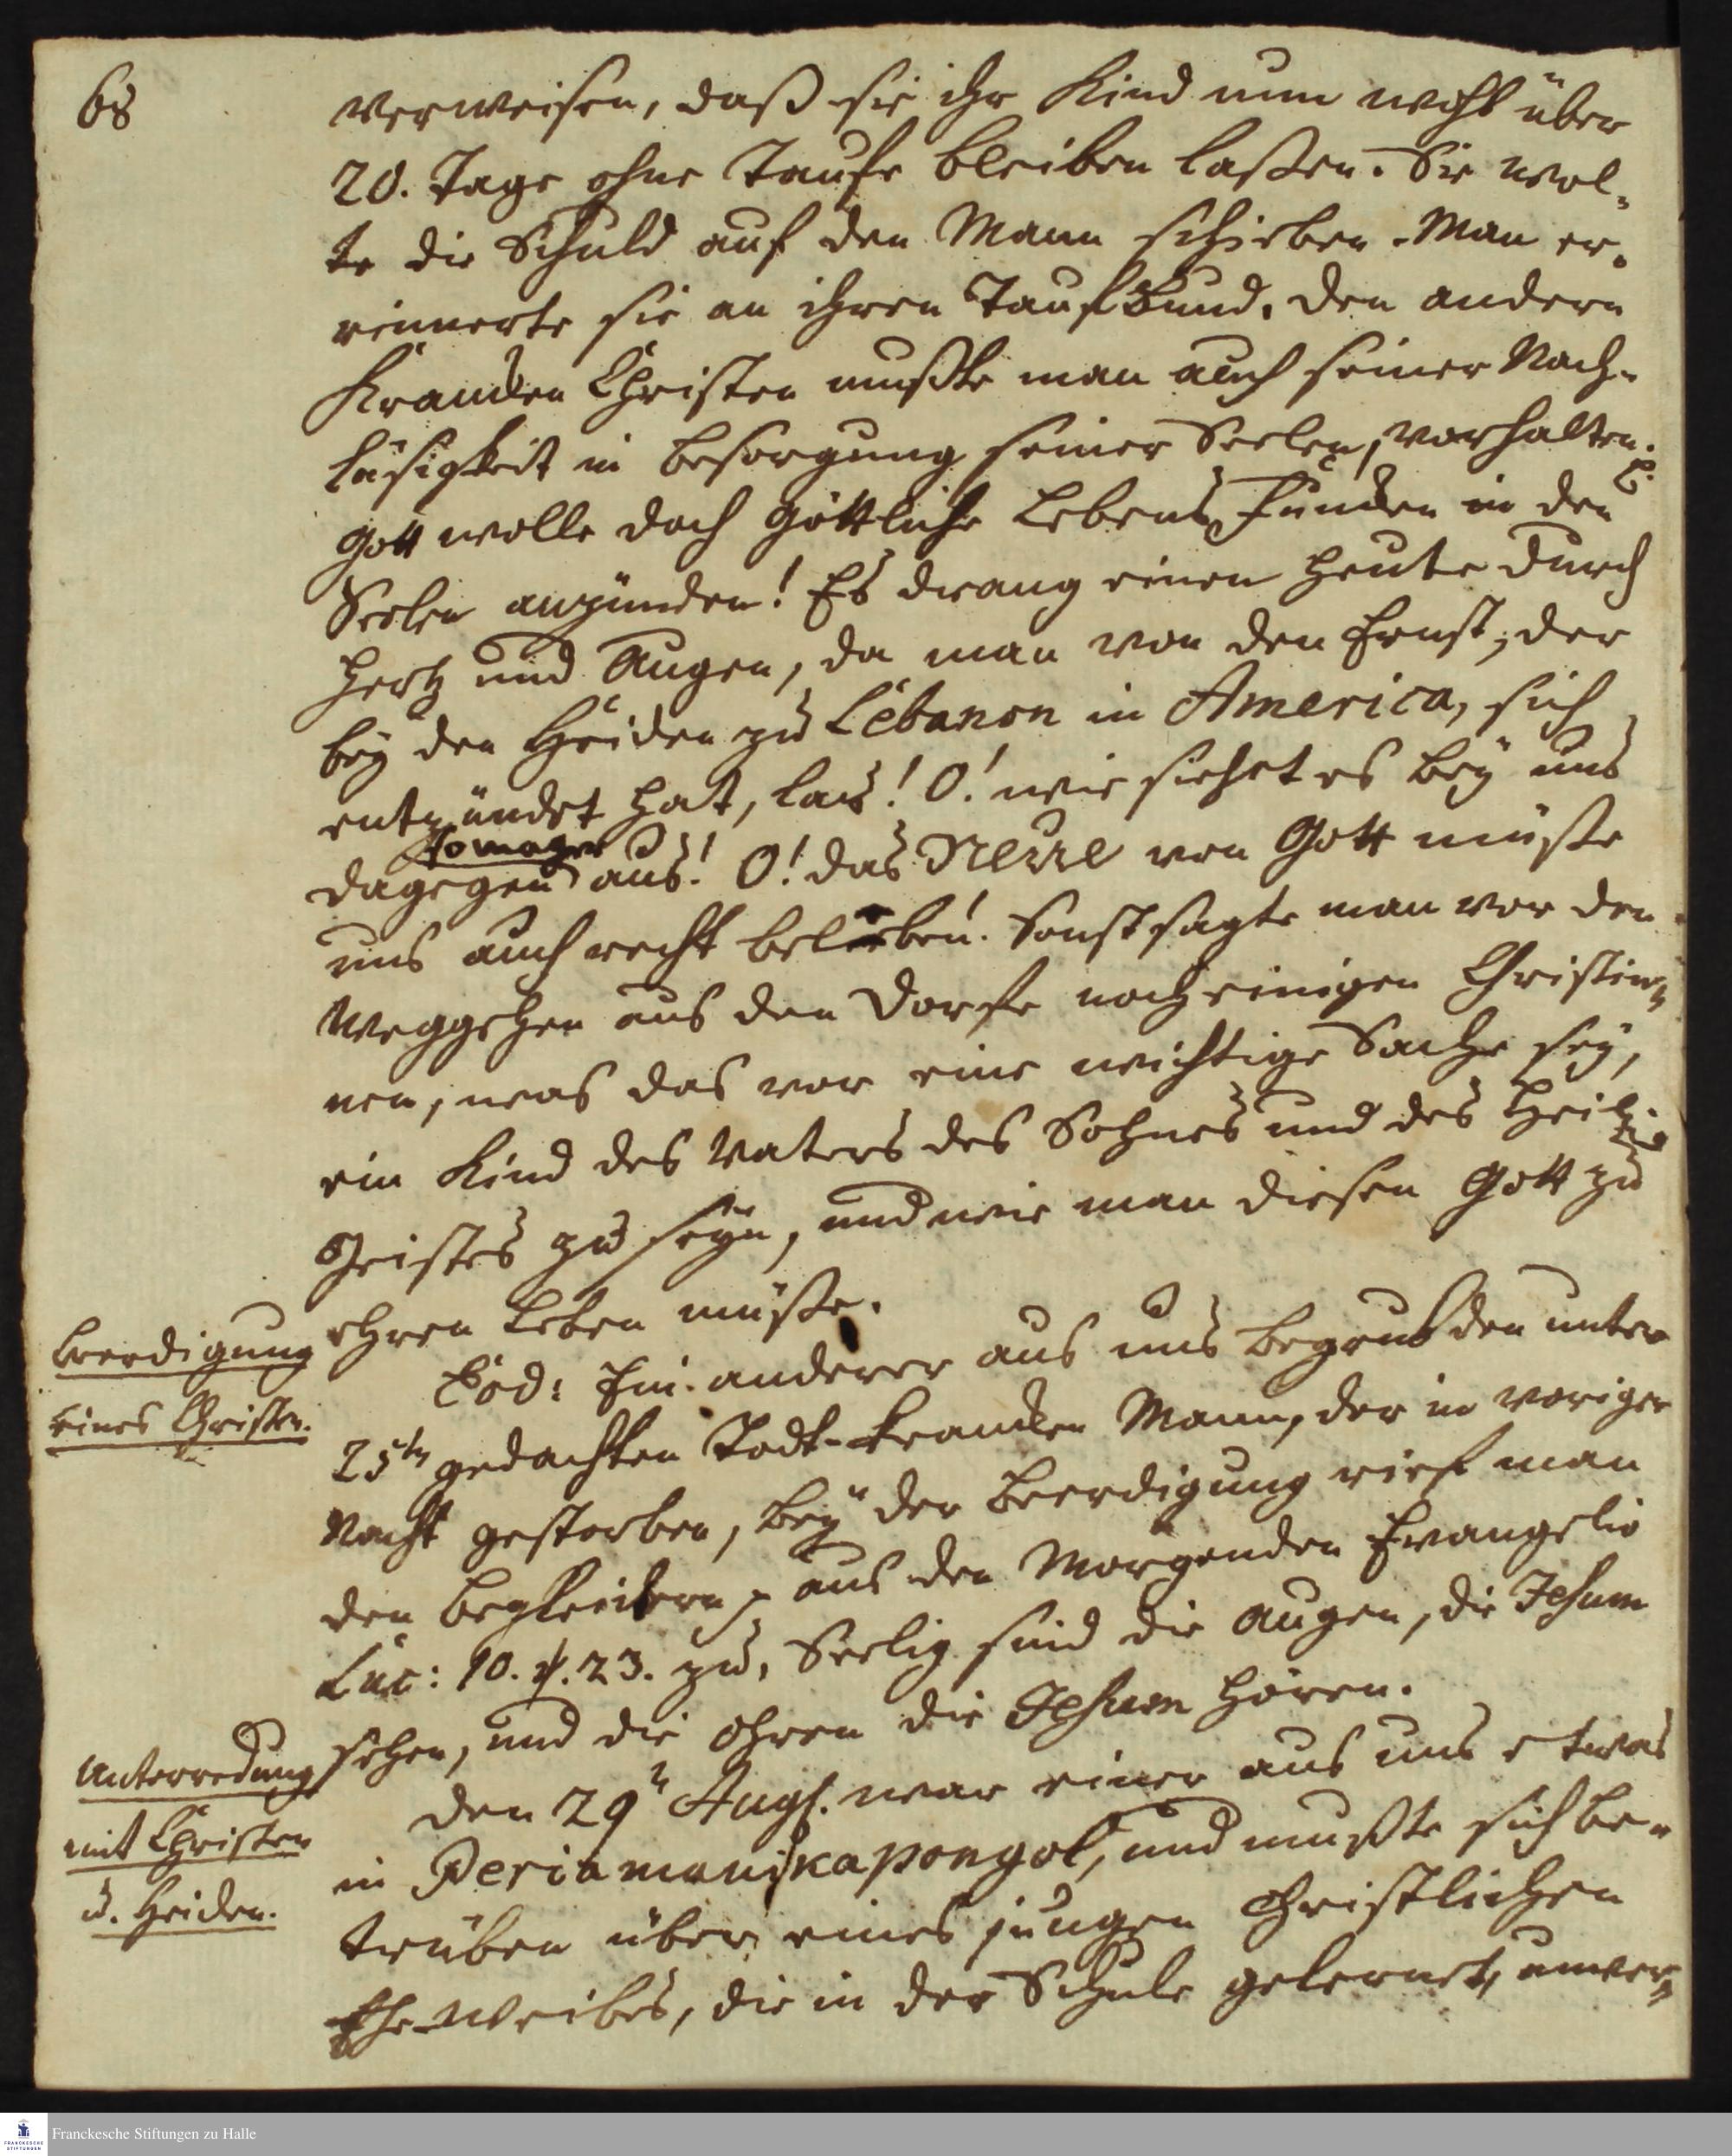 68
verweisen, daß sie ihr Kind nun wohl über
20. Tage ohne Taufe bleiben laßen. Sie wol„
te die Schuld auf den Mann schieben. Man er„
rinnerte sie an ihren TaufBund. Den andern
Krancken Christen mußte man auch seiner Nach„
läsigkeit in besorgung seiner Seelen, vorhalten.
Gott wolle doch göttliche Lebens Funcken in den
Seelen anzünden! Es drang einen heute durch
Hertz und Augen, da man von den Ernst, der
bey den Heiden zu Lebanon in America, sich
entzündet hat, las! O! wie siehet es bey uns
dagegen aus! O! das Neue von Gott müßte
uns auch recht beleben! Sonst sagte man vor den
Weggehen aus den Dorfe noch einigen Christin„
nen, was das vor eine wichtige Sache sey,
ein Kind des Vaters des Sohnes und des Heil.
Geistes zu seyn, und wie man diesen Gott zu
ehren leben müßte.
Beerdigung
eines Christen.
Eod: Ein anderer aus uns begrub den unter
25ten gedachten Todt-krancken Mann, der in voriger
Nacht gestorben, bey der Beerdigung rief man
den begleitern, aus den Morgenden Evangelio
Luc: 10. v. 23. zu, Seelig sind die Augen, die Jesum
sehen, und die Ohren die Jesum hören.
Unterredung
mit Christen
u. Heiden.
den 29n Aug. war einer aus uns etwas
in Periamanikapongol, und mußte sich be„
trüben über eines jungen Christlichen
Ehe-Weibes, die in der Schule gelernet, unver„